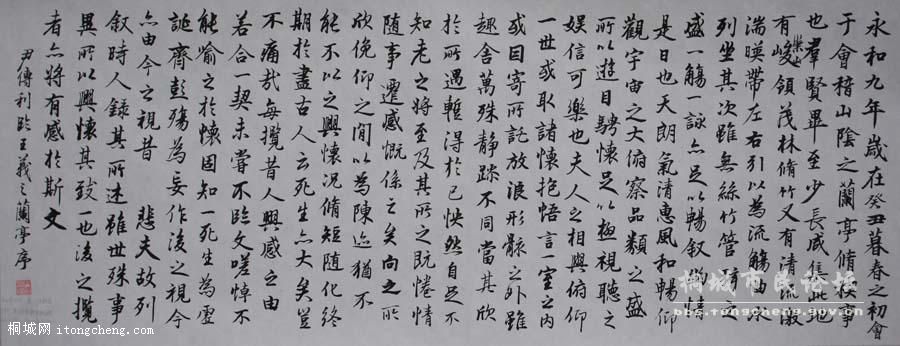 永和九年歲在癸丑暮春之初會
于會稽山陰之蘭亭脩稧事
也羣賢畢至少長咸集此地
有崇山峻領茂林脩竹又有清流激
湍暎帶左右引以為流觴曲水
列坐其次雖無絲竹管弦之
盛一觴一詠亦足以暢叙幽情
是日也天朗氣清惠風和暢仰
觀宇宙之大俯察品類之盛
所以遊目騁懷足以極視聽之
娛信可樂也夫人之相與俯仰
一世或取諸懷抱悟言一室之內
或因寄所託放浪形骸之外雖
趣舍萬殊静躁不同當其欣
於所遇暫得於己怏然自足不
知老之將至及其所之既惓情
隨事遷感慨係之矣向之所
欣俛仰之閒以為陳迹猶不
能不以之興懷況脩短隨化終
期於盡古人云死生亦大矣豈
不痛哉每攬昔人興感之由
若合一契未嘗不臨文嗟悼不
能喻之於懷固知一死生為虛
誕齊彭殤為妄作後之視今
亦由今之視昔 悲夫故列
叙時人錄其所述雖世殊事
異所以興懷其致一也後之攬
者亦將有感於斯文
尹傳利臨王羲之蘭亭序
桐城网 itongcheng.com
桐城市民论坛
bbs.tongcheng.com